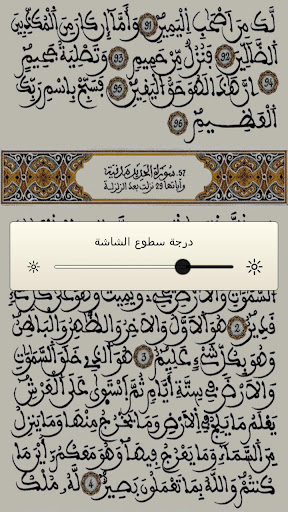 لَّكَ مِنَ اَصْحَٰبِ اِ۬لْيَمِينِ 91 وَأَمَّآ إِن كَانَ مِنَ اَ۬لْمُكَذِّبِينَ
اَ۬لضَّآلِّينَ 92 فَنُزُلٌ مِّنْ حَمِيمٍ 93 وَتَصْلِيَةُ جَحِيمٍ
94 اِنَّ هَٰذَا لَهُوَ حَقُّ اُ۬لْيَقِينِ 95 فَسَبِّحْ بِاسْمِ رَبِّكَ
اَ۬لْعَظِيمِ 96
57 سورة الحديد مدنية
وآياتها 29 نزلت بعد الزلزلة
درجة سطوع الشاشة
اُ۬لسَّمَٰوَٰتِ وَالَارْضِ يُحْيِۦ وَيُمِيتُ وَهُوَ عَلَىٰ كُلِّ
قَدِيرٌ 2 هُوَ اَ۬لَاوَّلُ وَالَاخِرُ وَالظَّٰهِرُ وَالْبَاطِنُ
وَهُوَ بِكُلِّ شَےْءٍ عَلِيمٌ 3 هُوَ اَ۬لذِے خَلَقَ اَ۬لسَّمَٰوَٰتِ
وَالَارْضَ فِے سِتَّةِ أَيَّامٍ ثُمَّ اَ۪سْتَوَىٰ عَلَى اَ۬لْعَرْشِ
يَعْلَمُ مَا يَلِجُ فِے اِ۬لَارْضِ وَمَا يَخْرُجُ مِنْهَا وَمَا يَنزِلُ
مِنَ اَ۬لسَّمَآءِ وَمَا يَعْرُجُ فِيهَا وَهُوَ مَعَكُمُۥٓ أَيْنَ مَا
كُنتُمْ وَاللَّهُ بِمَا تَعْمَلُونَ بَصِيرٌ 4 لَّهُۥ مُلْكُ